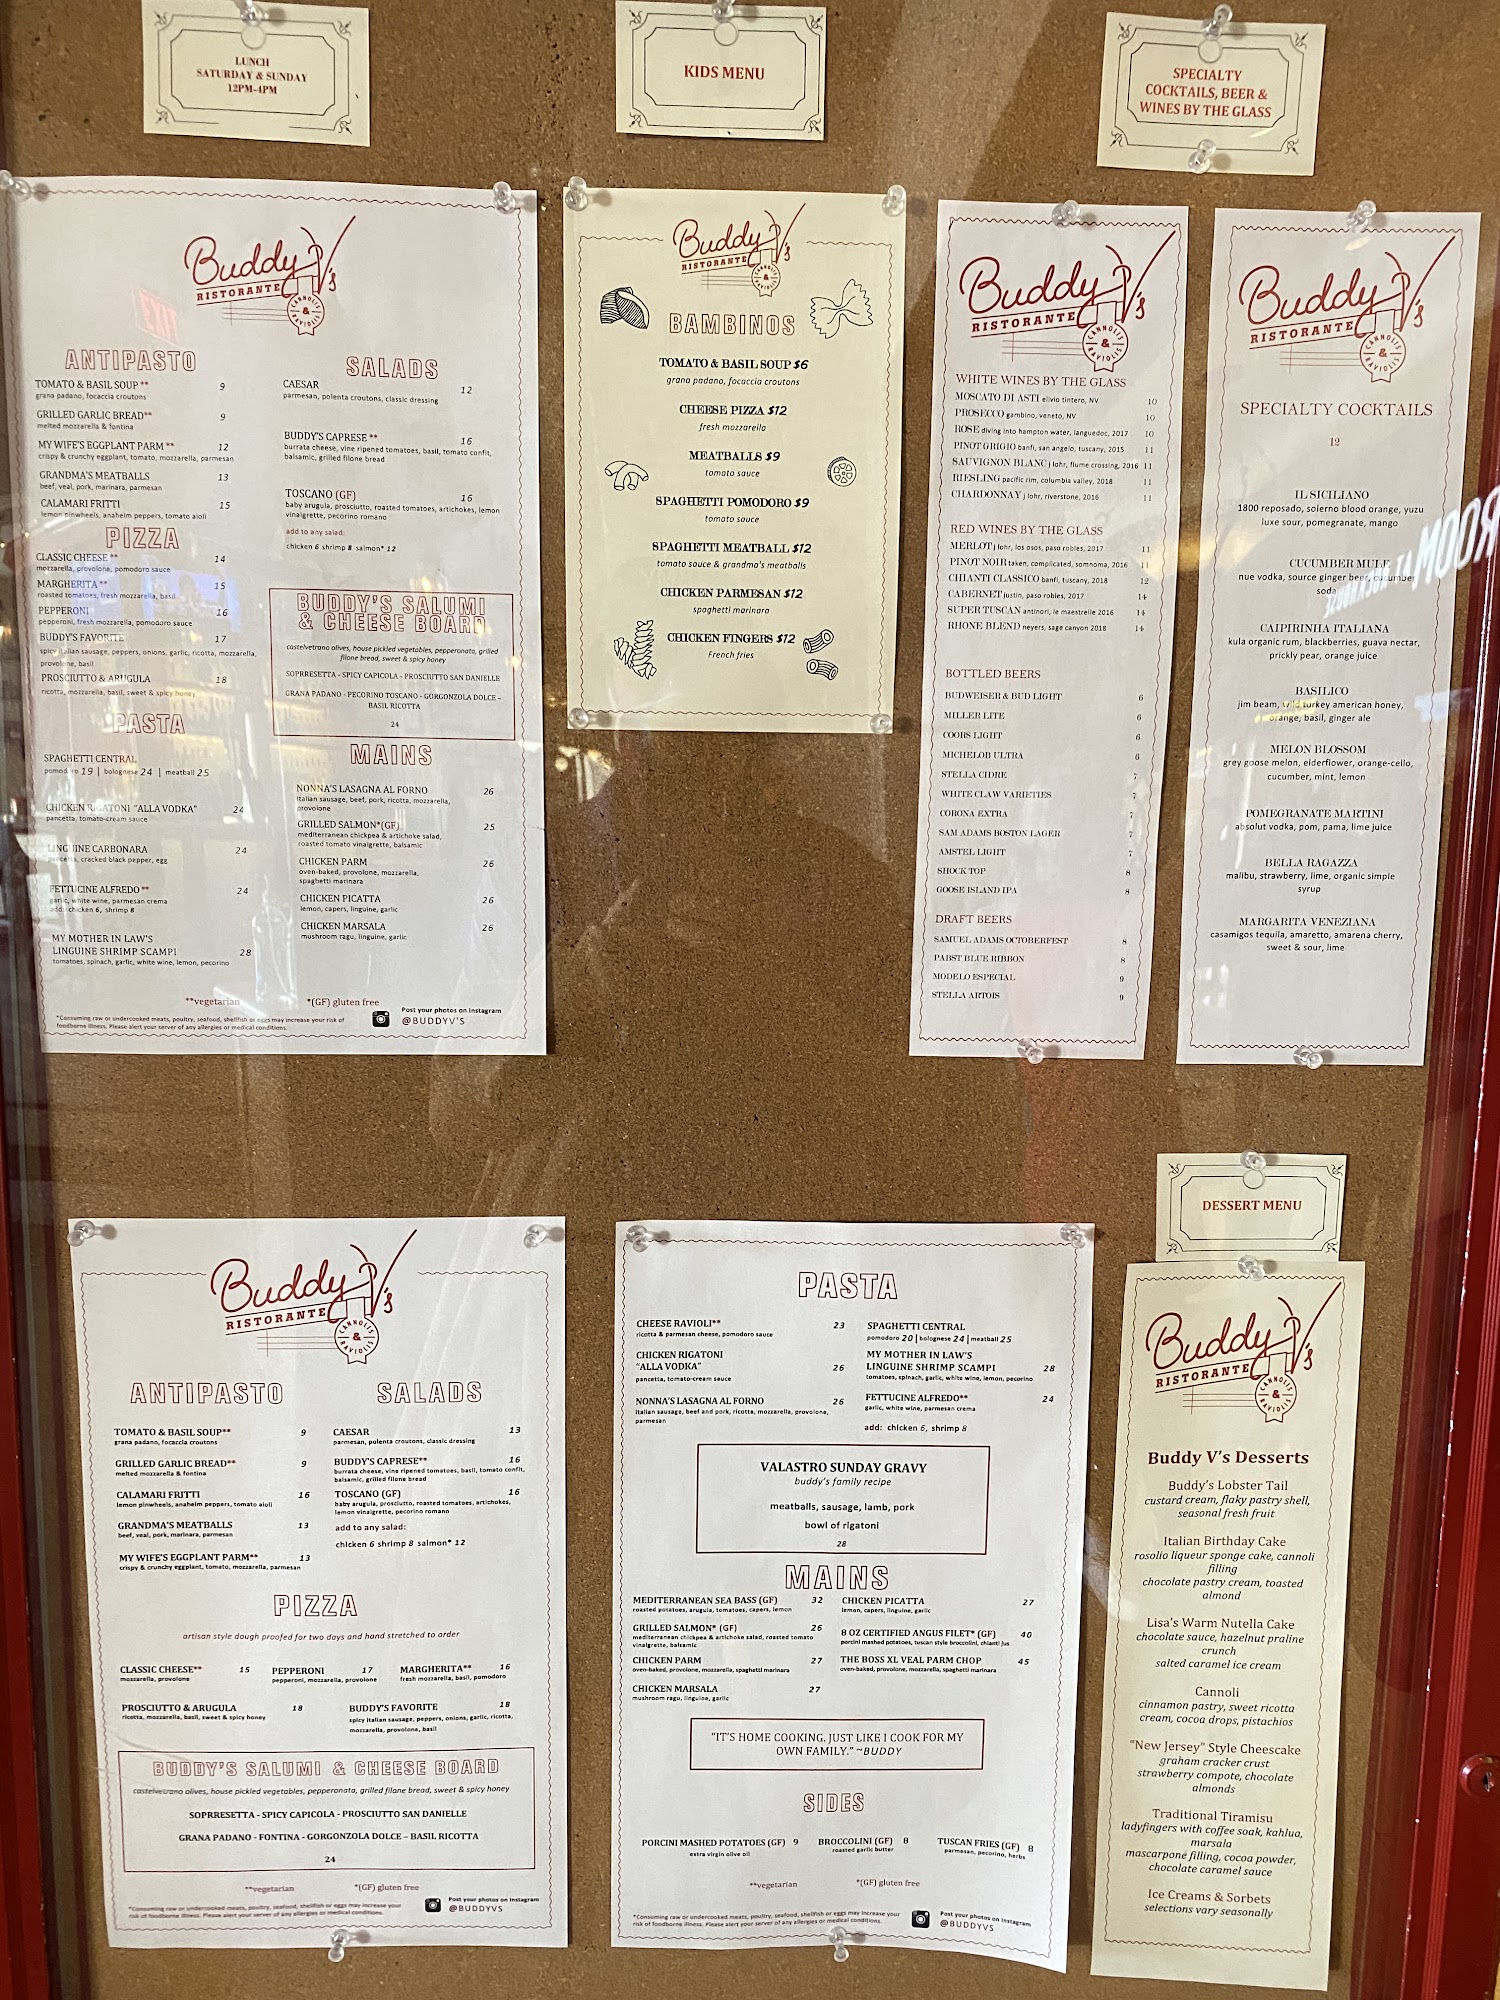 LUNCH
SATURDAY & SUNDAY
12PM-4PM
KIDS MENU
SPECIALTY
COCKTAILS, BEER &
WINES BY THE GLASS
Buddy V's
RISTORANTE
CANNOLIS
&
RAVIOLIS
ANTIPASTO
TOMATO & BASIL SOUP ** 9
grana padano, focaccia croutons
GRILLED GARLIC BREAD** 9
melted mozzarella & fontina
MY WIFE'S EGGPLANT PARM ** 12
crispy & crunchy eggplant, tomato, mozzarella, parmesan
GRANDMA'S MEATBALLS 13
beef, veal, pork, marinara, parmesan
CALAMARI FRITTI 15
lemon pinwheels, anaheim peppers, tomato aioli
PIZZA
CLASSIC CHEESE ** 14
mozzarella, provolone, pomodoro sauce
MARGHERITA ** 15
roasted tomatoes, fresh mozzarella, basil
PEPPERONI 16
pepperoni, fresh mozzarella, pomodoro sauce
BUDDY'S FAVORITE 17
spicy italian sausage, peppers, onions, garlic, ricotta, mozzarella,
provolone, basil
PROSCIUTTO & ARUGULA 18
ricotta, mozzarella, basil, sweet & spicy honey
PASTA
SPAGHETTI CENTRAL
pomodoro 19 | bolognese 24 | meatball 25
CHICKEN RIGATONI "ALLA VODKA" 24
pancetta, tomato-cream sauce
LINGUINE CARBONARA 24
pancetta, cracked black pepper, egg
FETTUCINE ALFREDO ** 24
garlic, white wine, parmesan crema
add: chicken 6, shrimp 8
MY MOTHER IN LAW'S
LINGUINE SHRIMP SCAMPI 28
tomatoes, spinach, garlic, white wine, lemon, pecorino
SALADS
CAESAR 12
parmesan, polenta croutons, classic dressing
BUDDY'S CAPRESE ** 16
burrata cheese, vine ripened tomatoes, basil, tomato confit,
balsamic, grilled filone bread
TOSCANO (GF) 16
baby arugula, prosciutto, roasted tomatoes, artichokes, lemon
vinaigrette, pecorino romano
add to any salad:
chicken 6 shrimp 8 salmon* 12
BUDDY'S SALUMI
& CHEESE BOARD
castelvetrano olives, house pickled vegetables, pepperonata, grilled
filone bread, sweet & spicy honey
SOPRRESETTA - SPICY CAPICOLA - PROSCIUTTO SAN DANIELLE
GRANA PADANO - PECORINO TOSCANO - GORGONZOLA DOLCE –
BASIL RICOTTA
24
MAINS
NONNA'S LASAGNA AL FORNO 26
italian sausage, beef, pork, ricotta, mozzarella,
provolone
GRILLED SALMON*(GF) 25
mediterranean chickpea & artichoke salad,
roasted tomato vinaigrette, balsamic
CHICKEN PARM 26
oven-baked, provolone, mozzarella,
spaghetti marinara
CHICKEN PICATTA 26
lemon, capers, linguine, garlic
CHICKEN MARSALA 26
mushroom ragu, linguine, garlic
**vegetarian *(GF) gluten free
*Consuming raw or undercooked meats, poultry, seafood, shellfish or eggs may increase your risk of
foodborne illness. Please alert your server of any allergies or medical conditions.
Post your photos on Instagram
@BUDDYV'S
Buddy V's
RISTORANTE
CANNOLIS
&
RAVIOLIS
BAMBINOS
TOMATO & BASIL SOUP $6
grana padano, focaccia croutons
CHEESE PIZZA $12
fresh mozzarella
MEATBALLS $9
tomato sauce
SPAGHETTI POMODORO $9
tomato sauce
SPAGHETTI MEATBALL $12
tomato sauce & grandma's meatballs
CHICKEN PARMESAN $12
spaghetti marinara
CHICKEN FINGERS $12
French fries
Buddy V's
RISTORANTE
CANNOLIS
&
RAVIOLIS
WHITE WINES BY THE GLASS
MOSCATO DI ASTI elivio tintero, NV 10
PROSECCO gambino, veneto, NV 10
ROSE diving into hampton water, languedoc, 2017 10
PINOT GRIGIO banfi, san angelo, tuscany, 2015 11
SAUVIGNON BLANC j lohr, flume crossing, 2016 11
RIESLING pacific rim, columbia valley, 2018 11
CHARDONNAY j lohr, riverstone, 2016 11
RED WINES BY THE GLASS
MERLOT j lohr, los osos, paso robles, 2017 11
PINOT NOIR taken, complicated, somnoma, 2016 11
CHIANTI CLASSICO banfi, tuscany, 2018 12
CABERNET justin, paso robles, 2017 14
SUPER TUSCAN antinori, le maestrelle 2016 14
RHONE BLEND neyers, sage canyon 2018 14
BOTTLED BEERS
BUDWEISER & BUD LIGHT 6
MILLER LITE 6
COORS LIGHT 6
MICHELOB ULTRA 6
STELLA CIDRE 7
WHITE CLAW VARIETIES 7
CORONA EXTRA 7
SAM ADAMS BOSTON LAGER 7
AMSTEL LIGHT 7
SHOCK TOP 8
GOOSE ISLAND IPA 8
DRAFT BEERS
SAMUEL ADAMS OCTOBERFEST 8
PABST BLUE RIBBON 8
MODELO ESPECIAL 9
STELLA ARTOIS 9
Buddy V's
RISTORANTE
CANNOLIS
&
RAVIOLIS
SPECIALTY COCKTAILS
12
IL SICILIANO
1800 reposado, solerno blood orange, yuzu
luxe sour, pomegranate, mango
CUCUMBER MULE
nue vodka, source ginger beer, cucumber
soda
CAIPIRINHA ITALIANA
kula organic rum, blackberries, guava nectar,
prickly pear, orange juice
BASILICO
jim beam, wild turkey american honey,
orange, basil, ginger ale
MELON BLOSSOM
grey goose melon, elderflower, orange-cello,
cucumber, mint, lemon
POMEGRANATE MARTINI
absolut vodka, pom, pama, lime juice
BELLA RAGAZZA
malibu, strawberry, lime, organic simple
syrup
MARGARITA VENEZIANA
casamigos tequila, amaretto, amarena cherry,
sweet & sour, lime
Buddy V's
RISTORANTE
CANNOLIS
&
RAVIOLIS
ANTIPASTO
TOMATO & BASIL SOUP** 9
grana padano, focaccia croutons
GRILLED GARLIC BREAD** 9
melted mozzarella & fontina
CALAMARI FRITTI 16
lemon pinwheels, anaheim peppers, tomato aioli
GRANDMA'S MEATBALLS 13
beef, veal, pork, marinara, parmesan
MY WIFE'S EGGPLANT PARM** 13
crispy & crunchy eggplant, tomato, mozzarella, parmesan
SALADS
CAESAR 13
parmesan, polenta croutons, classic dressing
BUDDY'S CAPRESE** 16
burrata cheese, vine ripened tomatoes, basil, tomato confit,
balsamic, grilled filone bread
TOSCANO (GF) 16
baby arugula, prosciutto, roasted tomatoes, artichokes,
lemon vinaigrette, pecorino romano
add to any salad:
chicken 6 shrimp 8 salmon* 12
PIZZA
artisan style dough proofed for two days and hand stretched to order
CLASSIC CHEESE** 15
mozzarella, provolone
PEPPERONI 17
pepperoni, mozzarella, provolone
MARGHERITA** 16
fresh mozzarella, basil, pomodoro
PROSCIUTTO & ARUGULA 18
ricotta, mozzarella, basil, sweet & spicy honey
BUDDY'S FAVORITE 18
spicy italian sausage, peppers, onions, garlic, ricotta,
mozzarella, provolone, basil
BUDDY'S SALUMI & CHEESE BOARD
castelvetrano olives, house pickled vegetables, pepperonata, grilled filone bread, sweet & spicy honey
SOPRRESETTA - SPICY CAPICOLA - PROSCIUTTO SAN DANIELLE
GRANA PADANO - FONTINA - GORGONZOLA DOLCE – BASIL RICOTTA
24
**vegetarian *(GF) gluten free
*Consuming raw or undercooked meats, poultry, seafood, shellfish or eggs may increase your
risk of foodborne illness. Please alert your server of any allergies or medical conditions.
Post your photos on Instagram
@BUDDYVS
PASTA
CHEESE RAVIOLI** 23
ricotta & parmesan cheese, pomodoro sauce
CHICKEN RIGATONI
"ALLA VODKA" 26
pancetta, tomato-cream sauce
NONNA'S LASAGNA AL FORNO 26
italian sausage, beef and pork, ricotta, mozzarella, provolone,
parmesan
SPAGHETTI CENTRAL
pomodoro 20 | bolognese 24 | meatball 25
MY MOTHER IN LAW'S
LINGUINE SHRIMP SCAMPI 28
tomatoes, spinach, garlic, white wine, lemon, pecorino
FETTUCINE ALFREDO** 24
garlic, white wine, parmesan crema
add: chicken 6, shrimp 8
VALASTRO SUNDAY GRAVY
buddy's family recipe
meatballs, sausage, lamb, pork
bowl of rigatoni
28
MAINS
MEDITERRANEAN SEA BASS (GF) 32
roasted potatoes, arugula, tomatoes, capers, lemon
GRILLED SALMON* (GF) 26
mediterranean chickpea & artichoke salad, roasted tomato
vinaigrette, balsamic
CHICKEN PARM 27
oven-baked, provolone, mozzarella, spaghetti marinara
CHICKEN MARSALA 27
mushroom ragu, linguine, garlic
CHICKEN PICATTA 27
lemon, capers, linguine, garlic
8 OZ CERTIFIED ANGUS FILET* (GF) 40
porcini mashed potatoes, tuscan style broccolini, chianti jus
THE BOSS XL VEAL PARM CHOP 45
oven-baked, provolone, mozzarella, spaghetti marinara
"IT'S HOME COOKING. JUST LIKE I COOK FOR MY
OWN FAMILY." ~BUDDY
SIDES
PORCINI MASHED POTATOES (GF) 9
extra virgin olive oil
BROCCOLINI (GF) 8
roasted garlic butter
TUSCAN FRIES (GF) 8
parmesan, pecorino, herbs
**vegetarian *(GF) gluten free
*Consuming raw or undercooked meats, poultry, seafood, shellfish or eggs may increase your
risk of foodborne illness. Please alert your server of any allergies or medical conditions.
Post your photos on Instagram
@BUDDYVS
DESSERT MENU
Buddy V's
RISTORANTE
CANNOLIS
&
RAVIOLIS
Buddy V's Desserts
Buddy's Lobster Tail
custard cream, flaky pastry shell,
seasonal fresh fruit
Italian Birthday Cake
rosolio liqueur sponge cake, cannoli
filling
chocolate pastry cream, toasted
almond
Lisa's Warm Nutella Cake
chocolate sauce, hazelnut praline
crunch
salted caramel ice cream
Cannoli
cinnamon pastry, sweet ricotta
cream, cocoa drops, pistachios
"New Jersey" Style Cheescake
graham cracker crust
strawberry compote, chocolate
almonds
Traditional Tiramisu
ladyfingers with coffee soak, kahlua,
marsala
mascarpone filling, cocoa powder,
chocolate caramel sauce
Ice Creams & Sorbets
selections vary seasonally